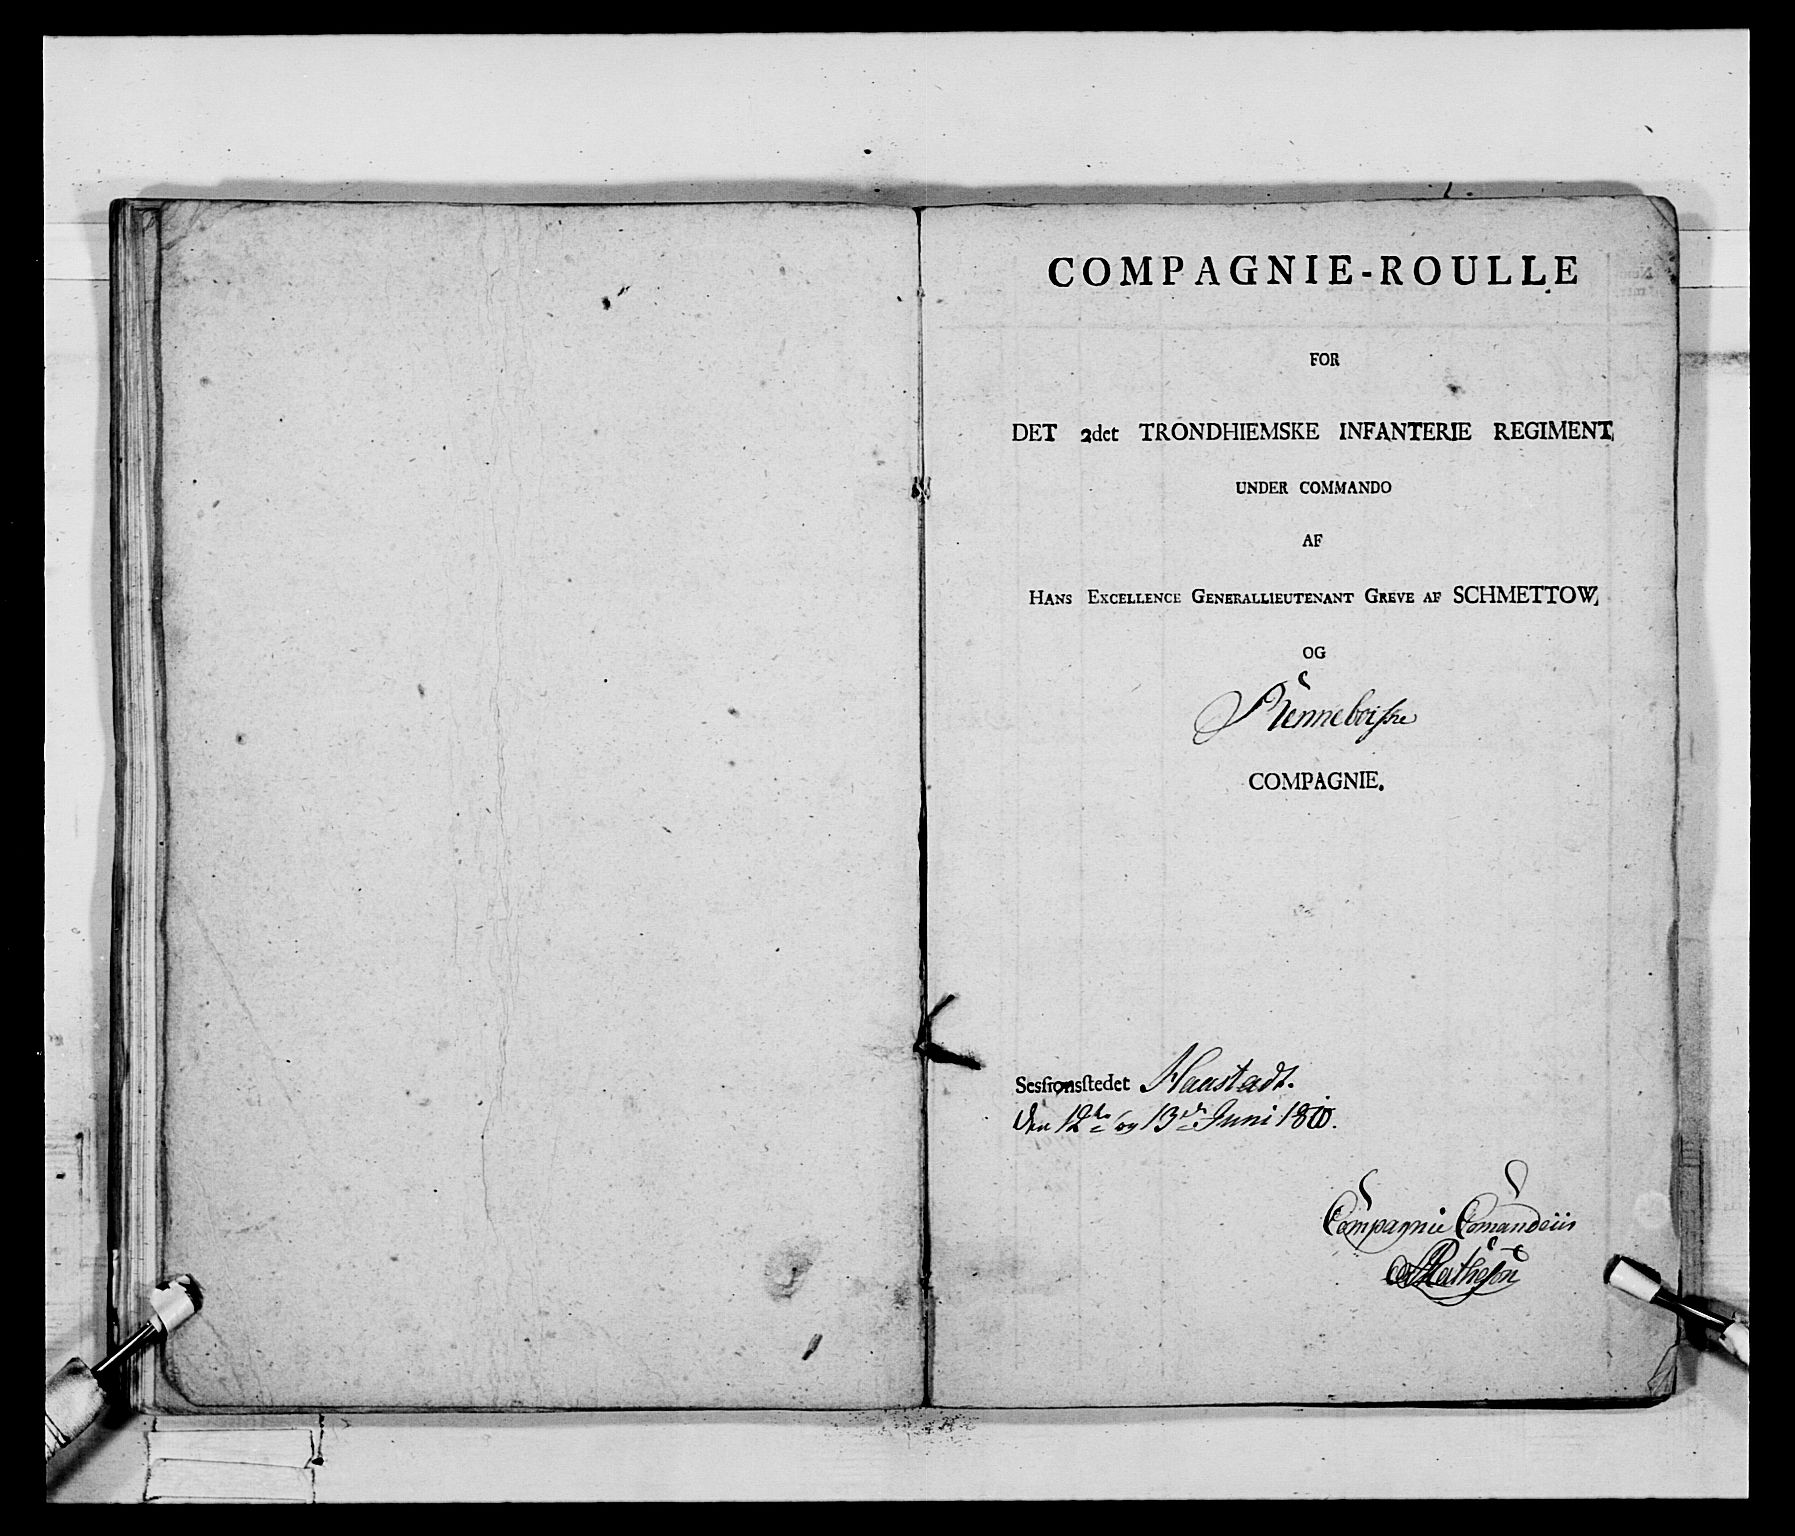 COMPAGNIE-ROULLE
FOR
DET 2det TRONDHIEMSKE INFANTERIE REGIMENT,
UNDER COMMANDO
AF
HANS EXCELLENCE GENERALLIEUTENANT GREVE AF SCHMETTOW,
OG
Renneboiske
COMPAGNIE.
Sessionsstedet Haastadt.
den 12te og 13de Juni 1810.
Compagnie Comandeur